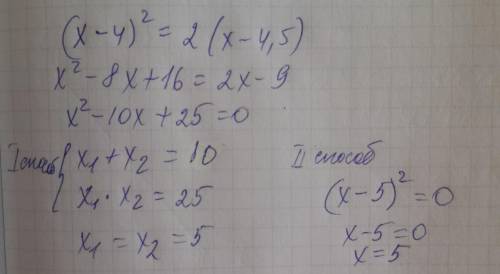 (x-4)² = 2(x-4,5)
x²-8x+16=2x-9
x²-10x+25=0
I способ { x₁+x₂=10
x₁·x₂=25
x₁=x₂=5
II способ
(x-5)²=0
x-5=0
x=5